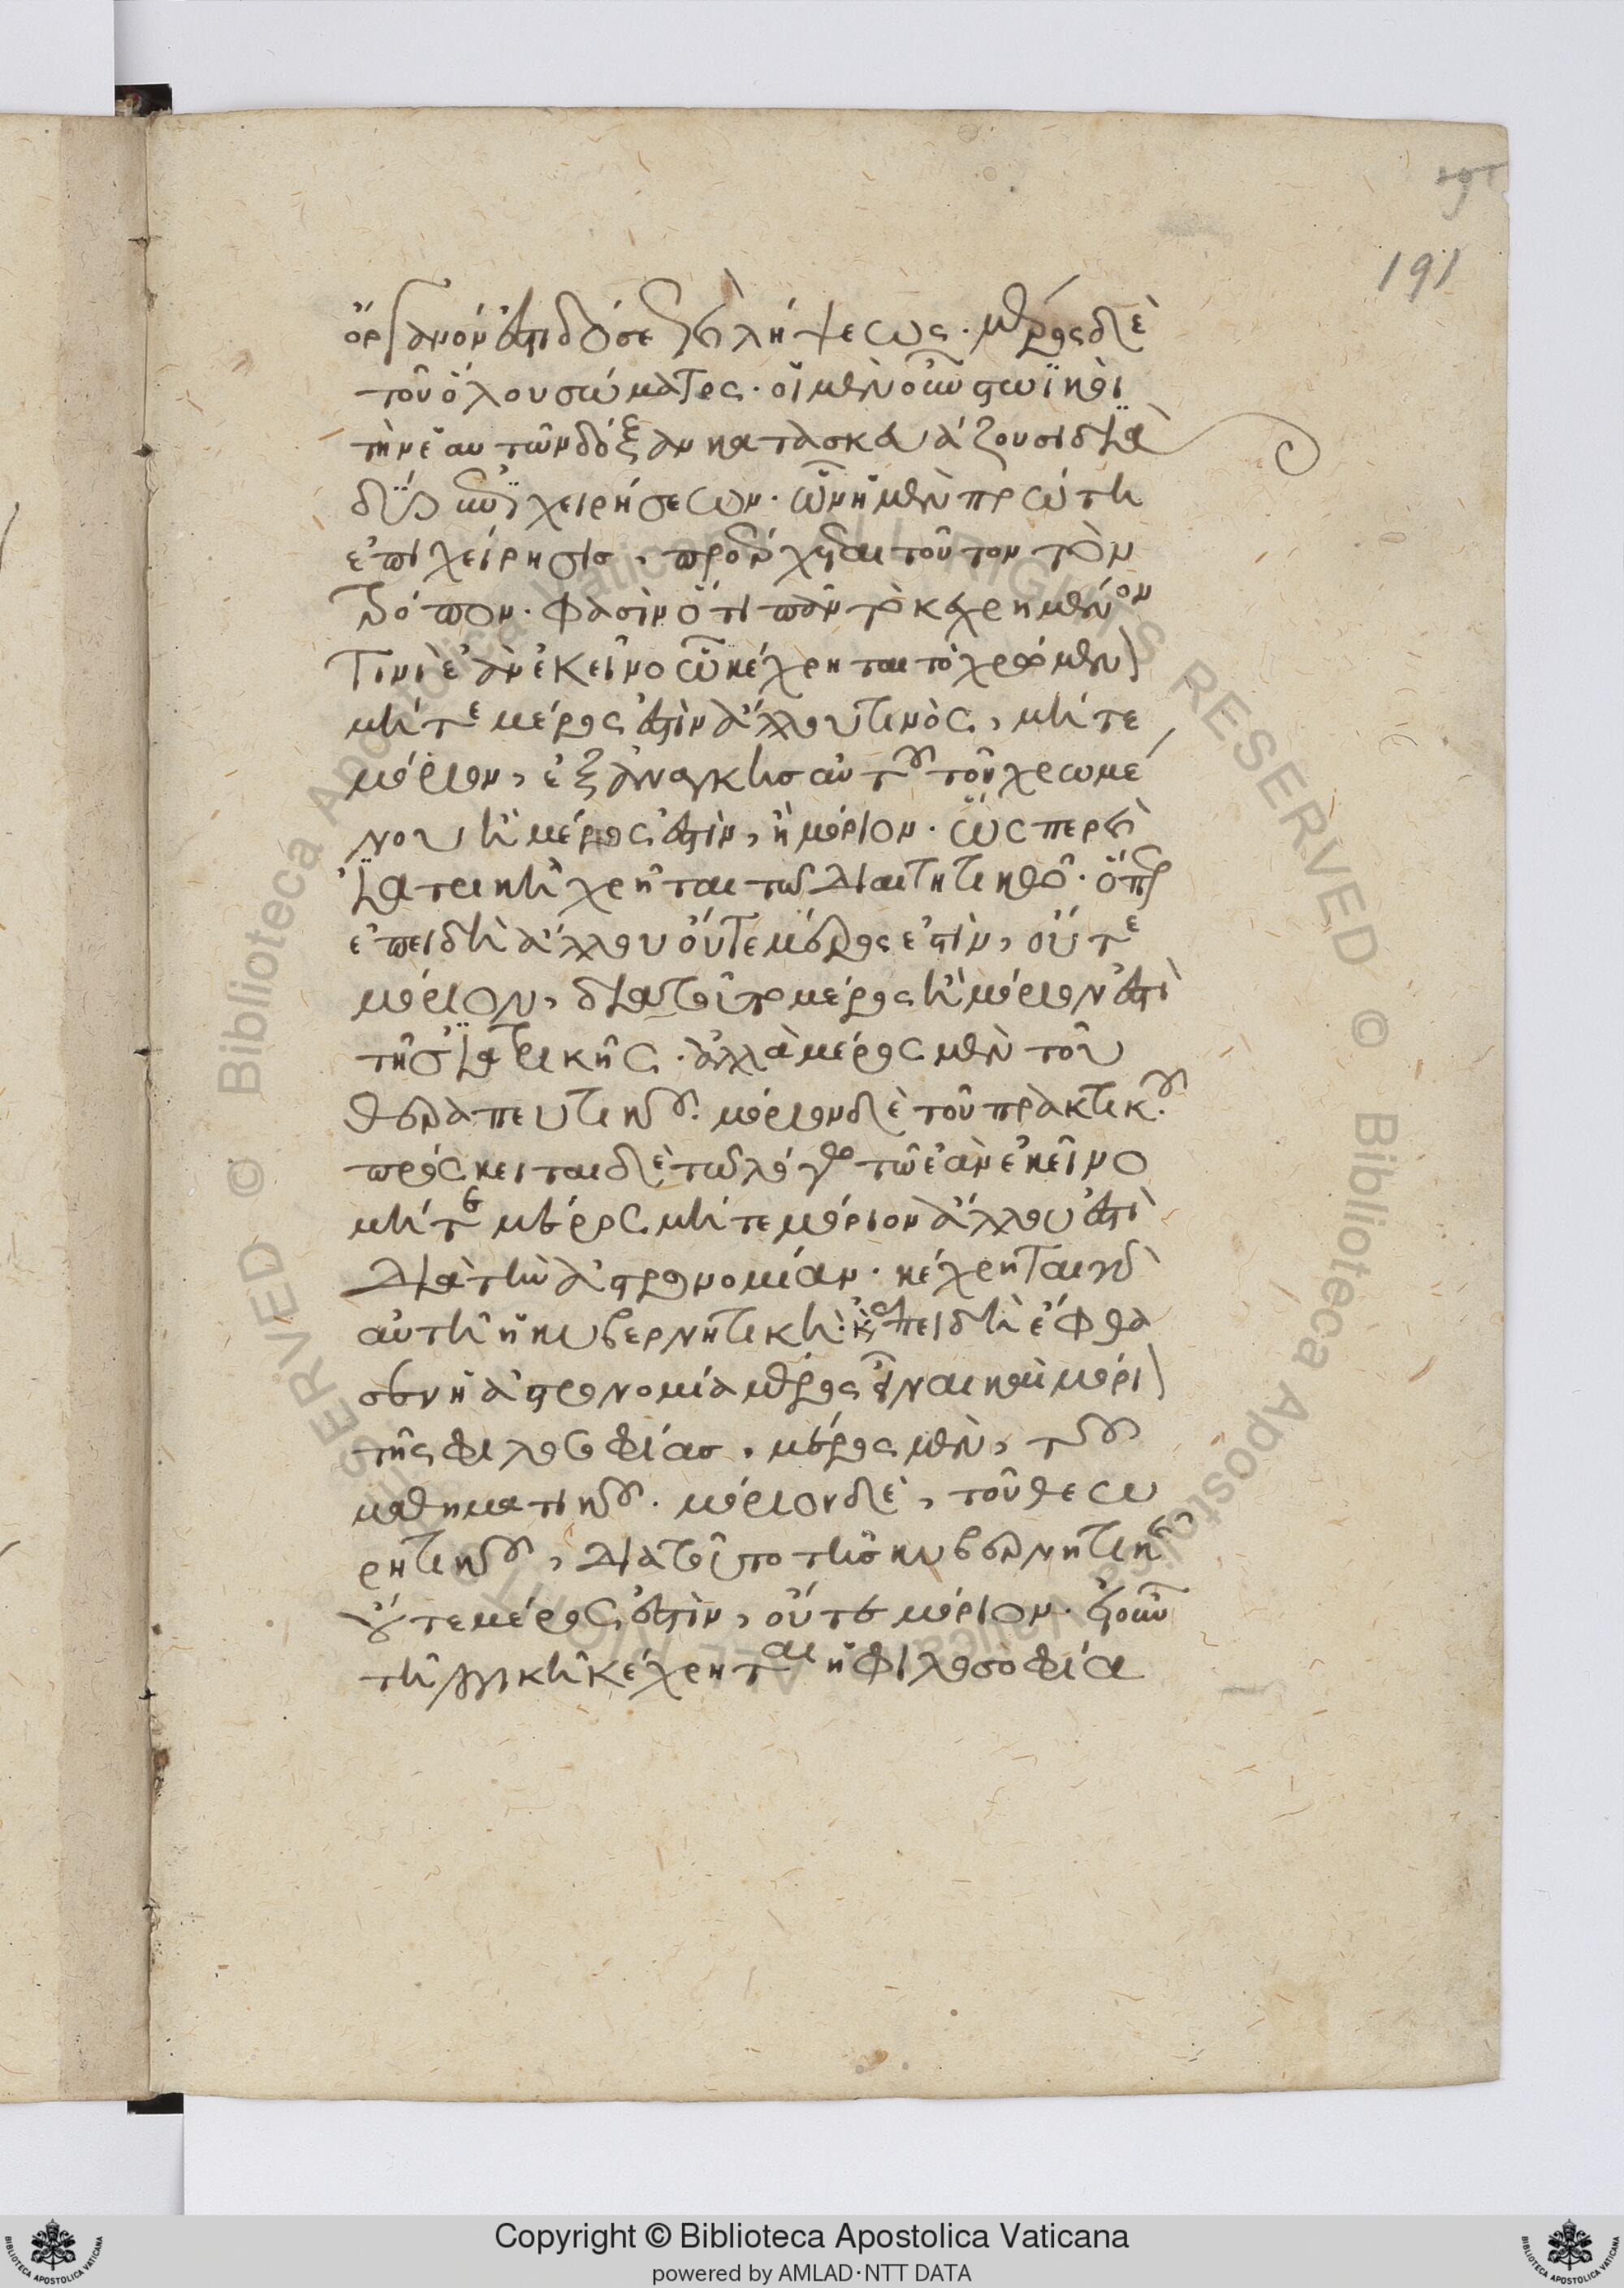 191
ὄργανόν ἐστι δόσεως καὶ λήψεως. μέρος δὲ
τοῦ ὅλου σώματος. οἱ μὲν οὖν στωϊκοὶ
τὴν ἑαυτῶν δόξαν κατασκευάζουσι διὰ
δύο ἐπιχειρήσεων. ὧν ἡ μὲν πρώτη
ἐπιχείρησις, προέρχεται τοῦτον τὸν
τρόπον. φασὶν ὅτι πᾶν τὸ κεχρημένον
τινὶ ἐὰν ἐκεῖνο ὧ κέχρηται τὸ χρώμενον
μήτε μέρος ἐστὶν ἄλλου τινὸς, μήτε
μόριον, ἐξ ἀνάγκης αὐτοῦ τοῦ χρωμέ
νου ἢ μέρος ἐστὶν, ἢ μόριον. ὥσπερ ἡ
ἰατρικὴ χρῆται τῶ διαιτητικῶ. ὅπερ
ἐπειδὴ ἄλλου οὔτε μέρος ἐστὶν, οὔτε
μόριον, διὰ τοῦτο μέρος ἢ μόριον ἐστὶ
τῆς ἰατρικῆς. ἀλλὰ μέρος μὲν τοῦ
θεραπευτικοῦ. μόριον δὲ τοῦ πρακτικοῦ.
πρόσκειται δὲ τῶ λόγω τῶ ἐὰν ἐκεῖνο
μήτε μέρος μήτε μόριον ἄλλου ἐστὶ
διὰ τὴν ἀστρονομίαν. κέχρηται γὰρ
αὐτῆ ἡ κυβερνητική. καὶ ἐπειδὴ ἔφθα
σεν ἡ ἀστρονομία μέρος εἶναι καὶ μόριον
τῆς φιλοσοφίας, μέρος μὲν, τοῦ
μαθηματικοῦ. μόριον δὲ, τοῦ θεω
ρητικοῦ, διὰ τοῦτο τῆς κυβερνητικῆς
οὔτε μέρος ἐστὶν, οὔτε μόριον. εἰ οὖν
τῆ λογικῆ κέχρηται ἡ φιλοσοφία
Copyright © Biblioteca Apostolica Vaticana
powered by AMLAD·NTT DATA